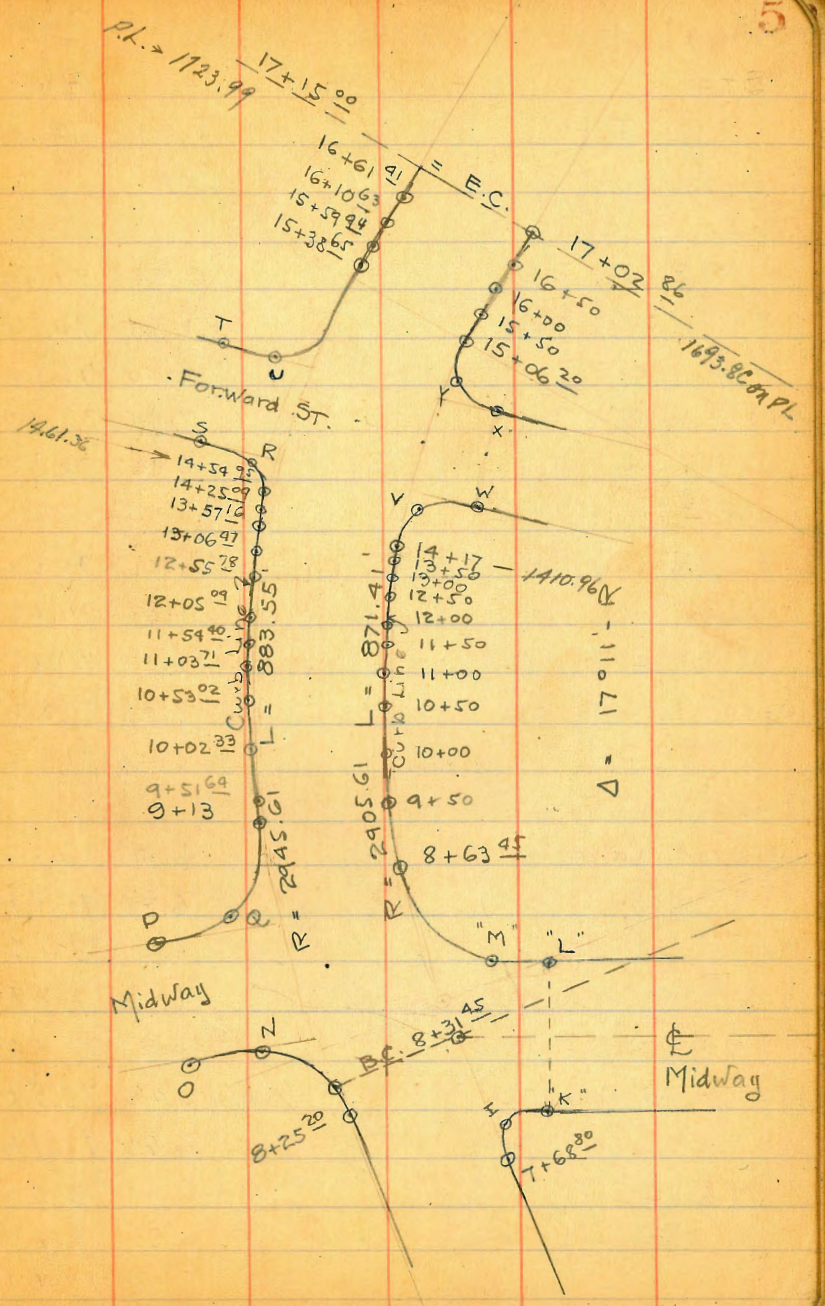 5
P.L. → 1723.99
17+15 00
16+61 91
16+10 63
15+59 94
15+38 65
=
E.C.
17+02 86
16+50
16+00
15+50
15+06 20
1693.80 on PL
T
U
Forward ST.
Y
X
14.61.36
S
R
14+54
14+25
13+57 16
13+06 47
12+55 78
12+05 09
11+54 40
11+03 71
10+53 02
10+02 33
9+51 64
9+13
Curb Line
L = 883.55'
R = 2945.61
V
W
14+17 — 1410.96
13+50
13+00
12+50
12+00
11+50
11+00
10+50
10+00
9+50
8+63 45
L = 871.41'
Curb Line
R = 2905.61
Δ = 17°11'-R
P
Q
"M"
"L"
Midway
B.C. 8+31 45
℄
Midway
O
8+25 20
H
"K"
7+68 80